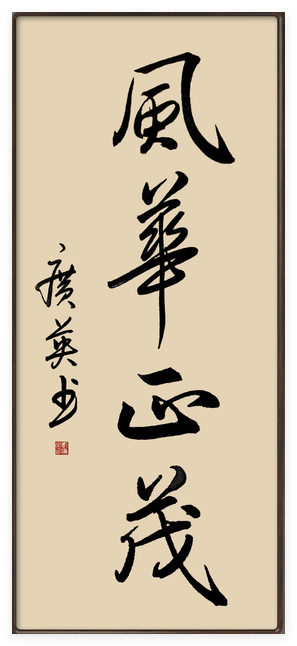 風華正茂
廣英书